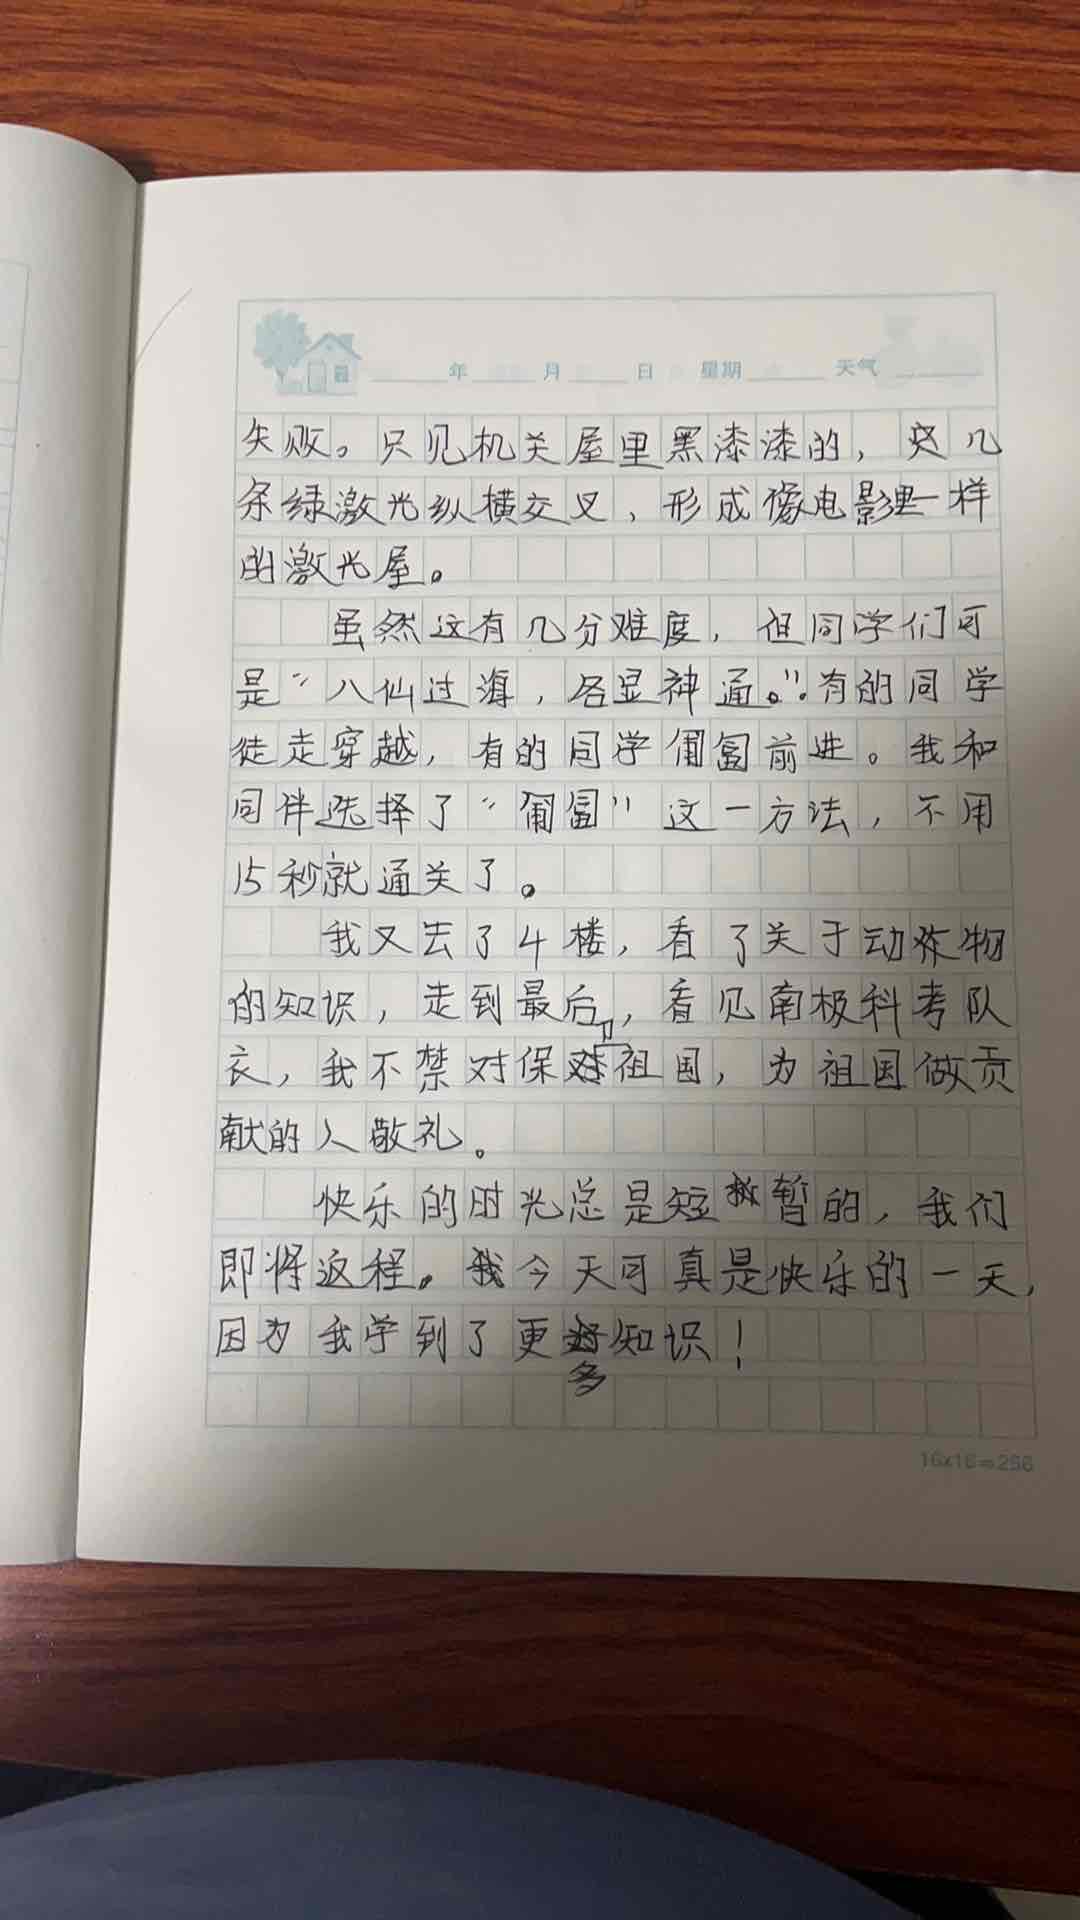 年 月 日 星期 天气
失败。只见机关屋里黑漆漆的，这几
条绿激光纵横交叉，形成像电影里一样
的激光屋。
虽然这有几分难度，但同学们可
是“八仙过海，各显神通。”有的同学
徒走穿越，有的同学匍匐前进。我和
同伴选择了“匍匐”这一方法，不用
15秒就通关了。
我又去了4楼，看了关于动植物
的知识，走到最后，看见南极科考队
衣，我不禁对保卫祖国，为祖国做贡
献的人敬礼。
快乐的时光总是短暂的，我们
即将返程。今天可真是快乐的一天，
因为我学到了更多知识！
16x16=256